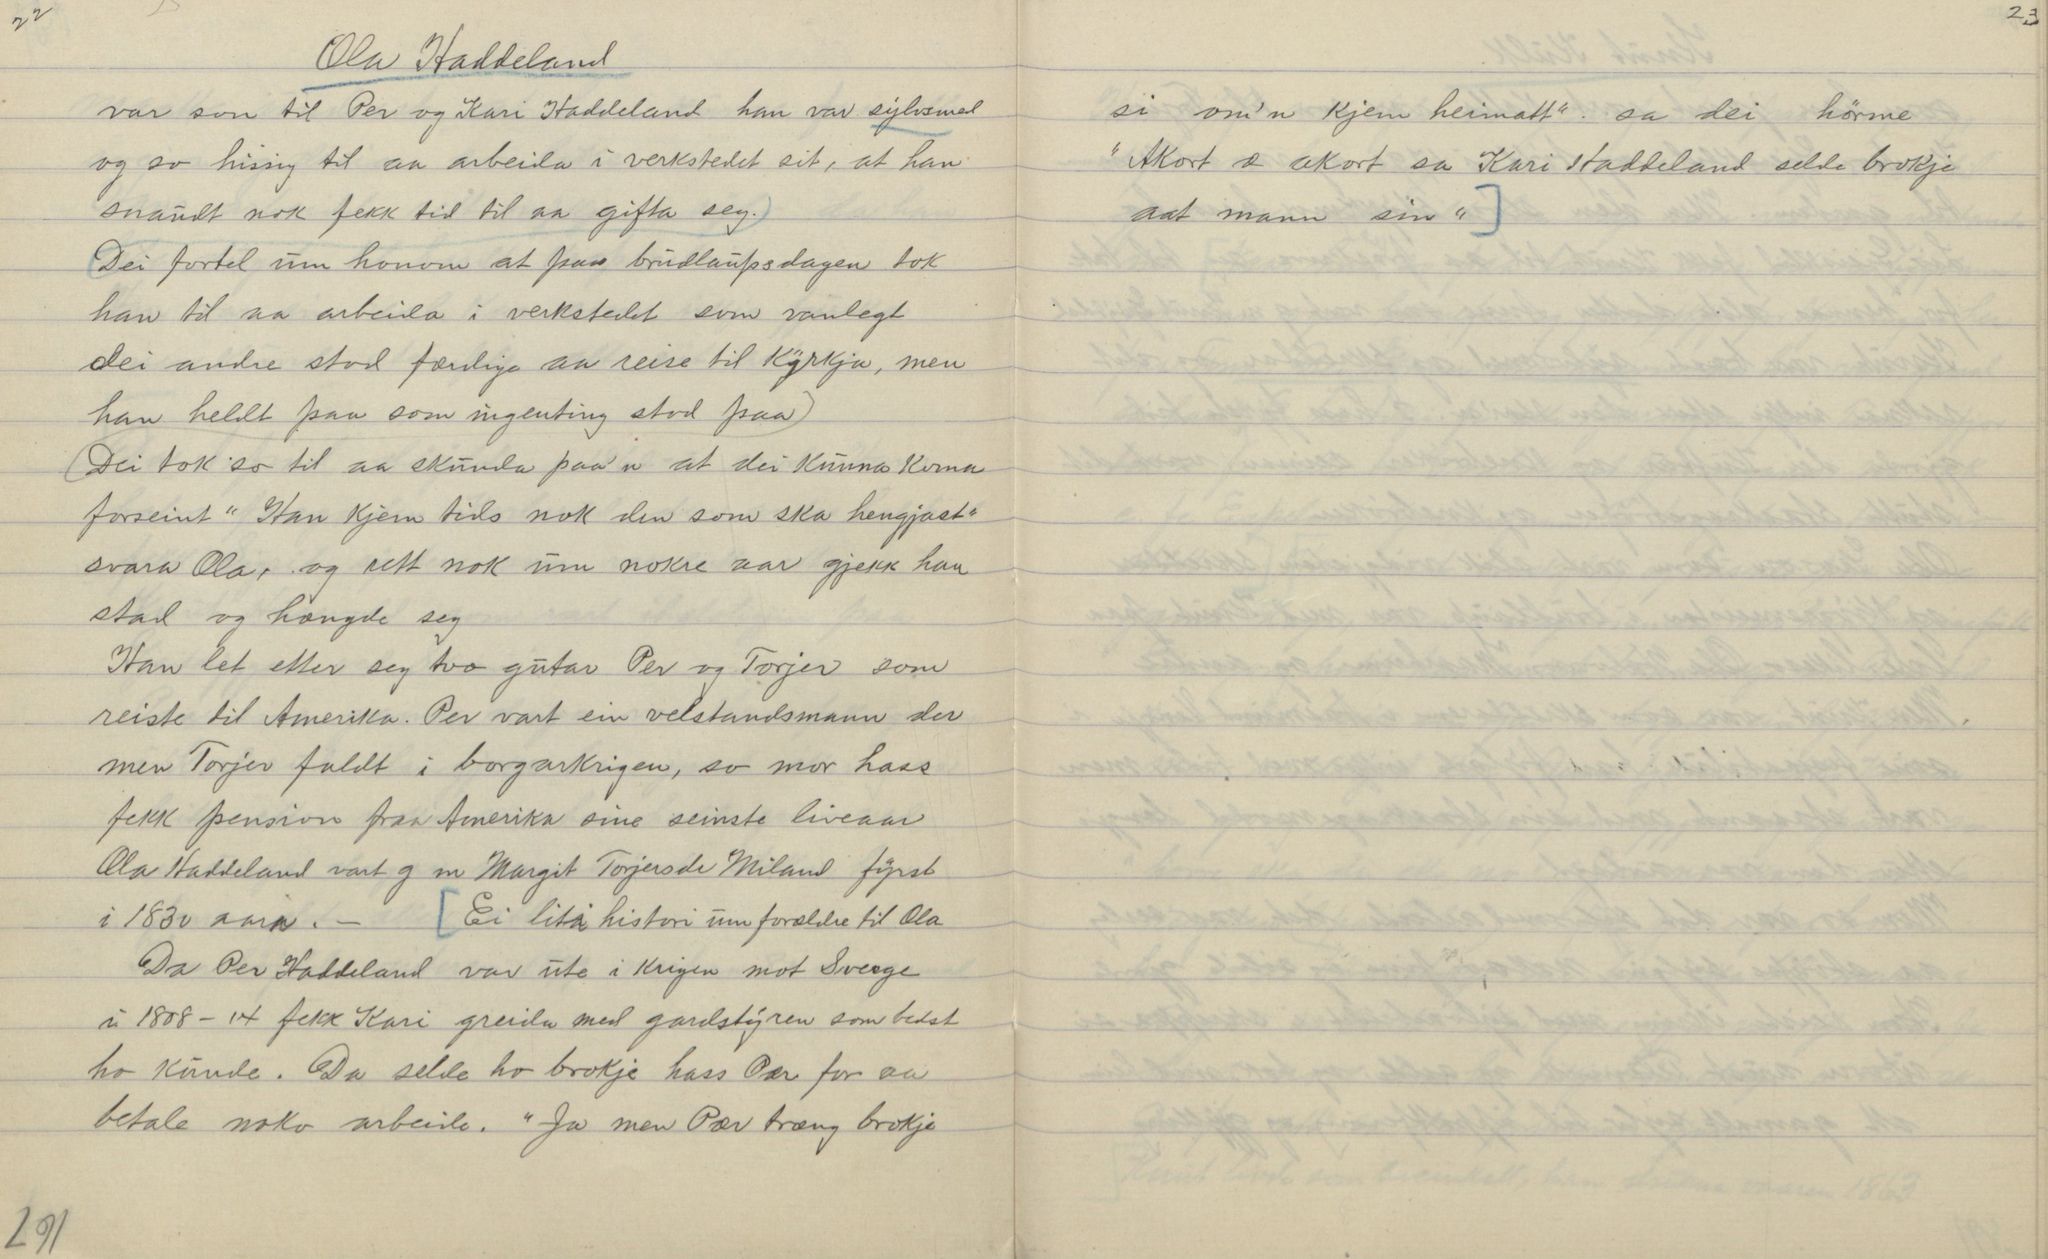 22
Ola Haddeland
var son til Per og Kari Haddeland han var sylvsmed
og so hissig til aa arbeida i verkstedet sit, at han
snaudt nok fekk tid til aa gifta seg.)
(Dei fortel um honom at paa brudlaupsdagen tok
han til aa arbeida i verkstedet som vanlegt
dei andre stod færdige aa reise til Kyrkja, men
han heldt paa som ingenting stod paa)
(Dei tok so til aa skunda paa'n at dei kunna koma
forseint "Han kjem tids nok den som ska hengjast"
svara Ola, og rett nok um nokre aar gjekk han
stad og hængde seg
Han let etter seg tvo gutar Per og Torjer som
reiste til Amerika. Per vart ein velstandsmann der
men Torjer faldt i borgarkrigen, so mor hass
fekk pension fraa Amerika sine seinste liveaar
Ola Haddeland vart g m Margit Torjersdr Miland fyrst
i 1830 aara. — [Ei lita histori um forældre til Ola
Da Per Haddeland var ute i krigen mot Sverge
i 1808–14 fekk Kari greida med gardstyren som bedst
ho kunde. Da selde ho brokje hass Pær for aa
betale noko arbeide. "Ja men Pær træng brokje
291
23
si om'n kjem heimatt". sa dei hörme
"Akort æ akort sa Kari Haddeland selde brokje
aat mann sin"]